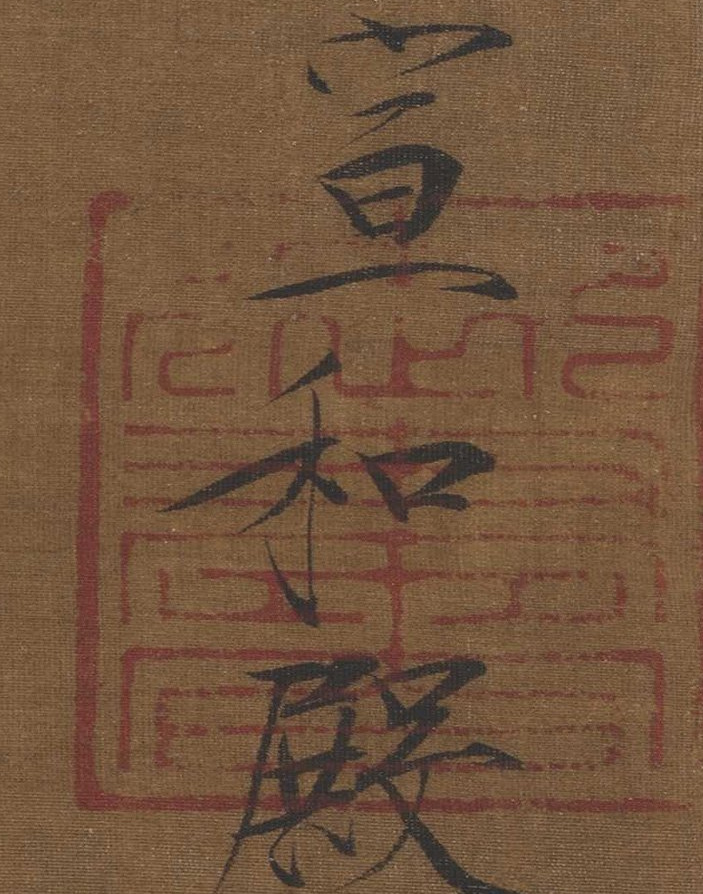 宣和殿